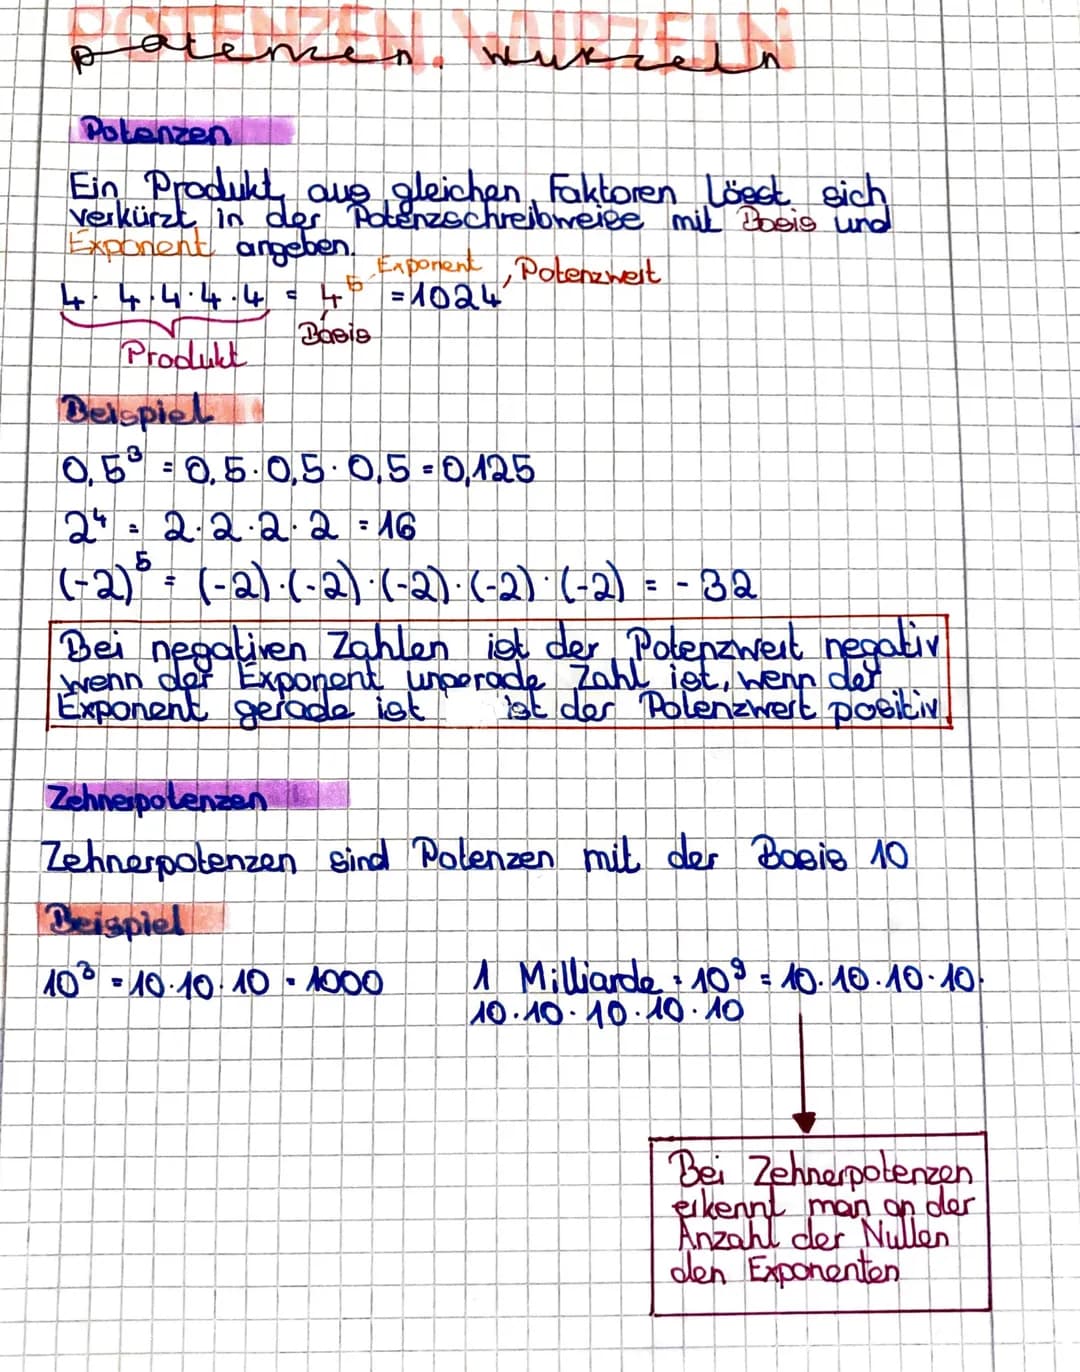 POTENZEN, WURZELN
potenzen, wurzeln
Potenzen
Ein Produkt aus gleichen Faktoren lässt sich
verkürzt in der Potenzschreibweise mit Basis und
Exponent angeben.
Exponent
, Potenzwert
4 · 4 · 4 · 4 · 4 = 4⁵ = 1024
Basis
Produkt
Beispiel
0,5³ = 0,5 · 0,5 · 0,5 = 0,125
2⁴ = 2 · 2 · 2 · 2 = 16
(-2)⁵ = (-2) · (-2) · (-2) · (-2) · (-2) = -32
Bei negativen Zahlen ist der Potenzwert negativ
wenn der Exponent ungerade Zahl ist, wenn der
Exponent gerade ist ist der Potenzwert positiv
Zehnerpotenzen
Zehnerpotenzen sind Potenzen mit der Basis 10
Beispiel
10³ = 10 · 10 · 10 = 1000
1 Milliarde = 10⁹ = 10 · 10 · 10 · 10 ·
10 · 10 · 10 · 10 · 10
Bei Zehnerpotenzen
erkennt man an der
Anzahl der Nullen
den Exponenten